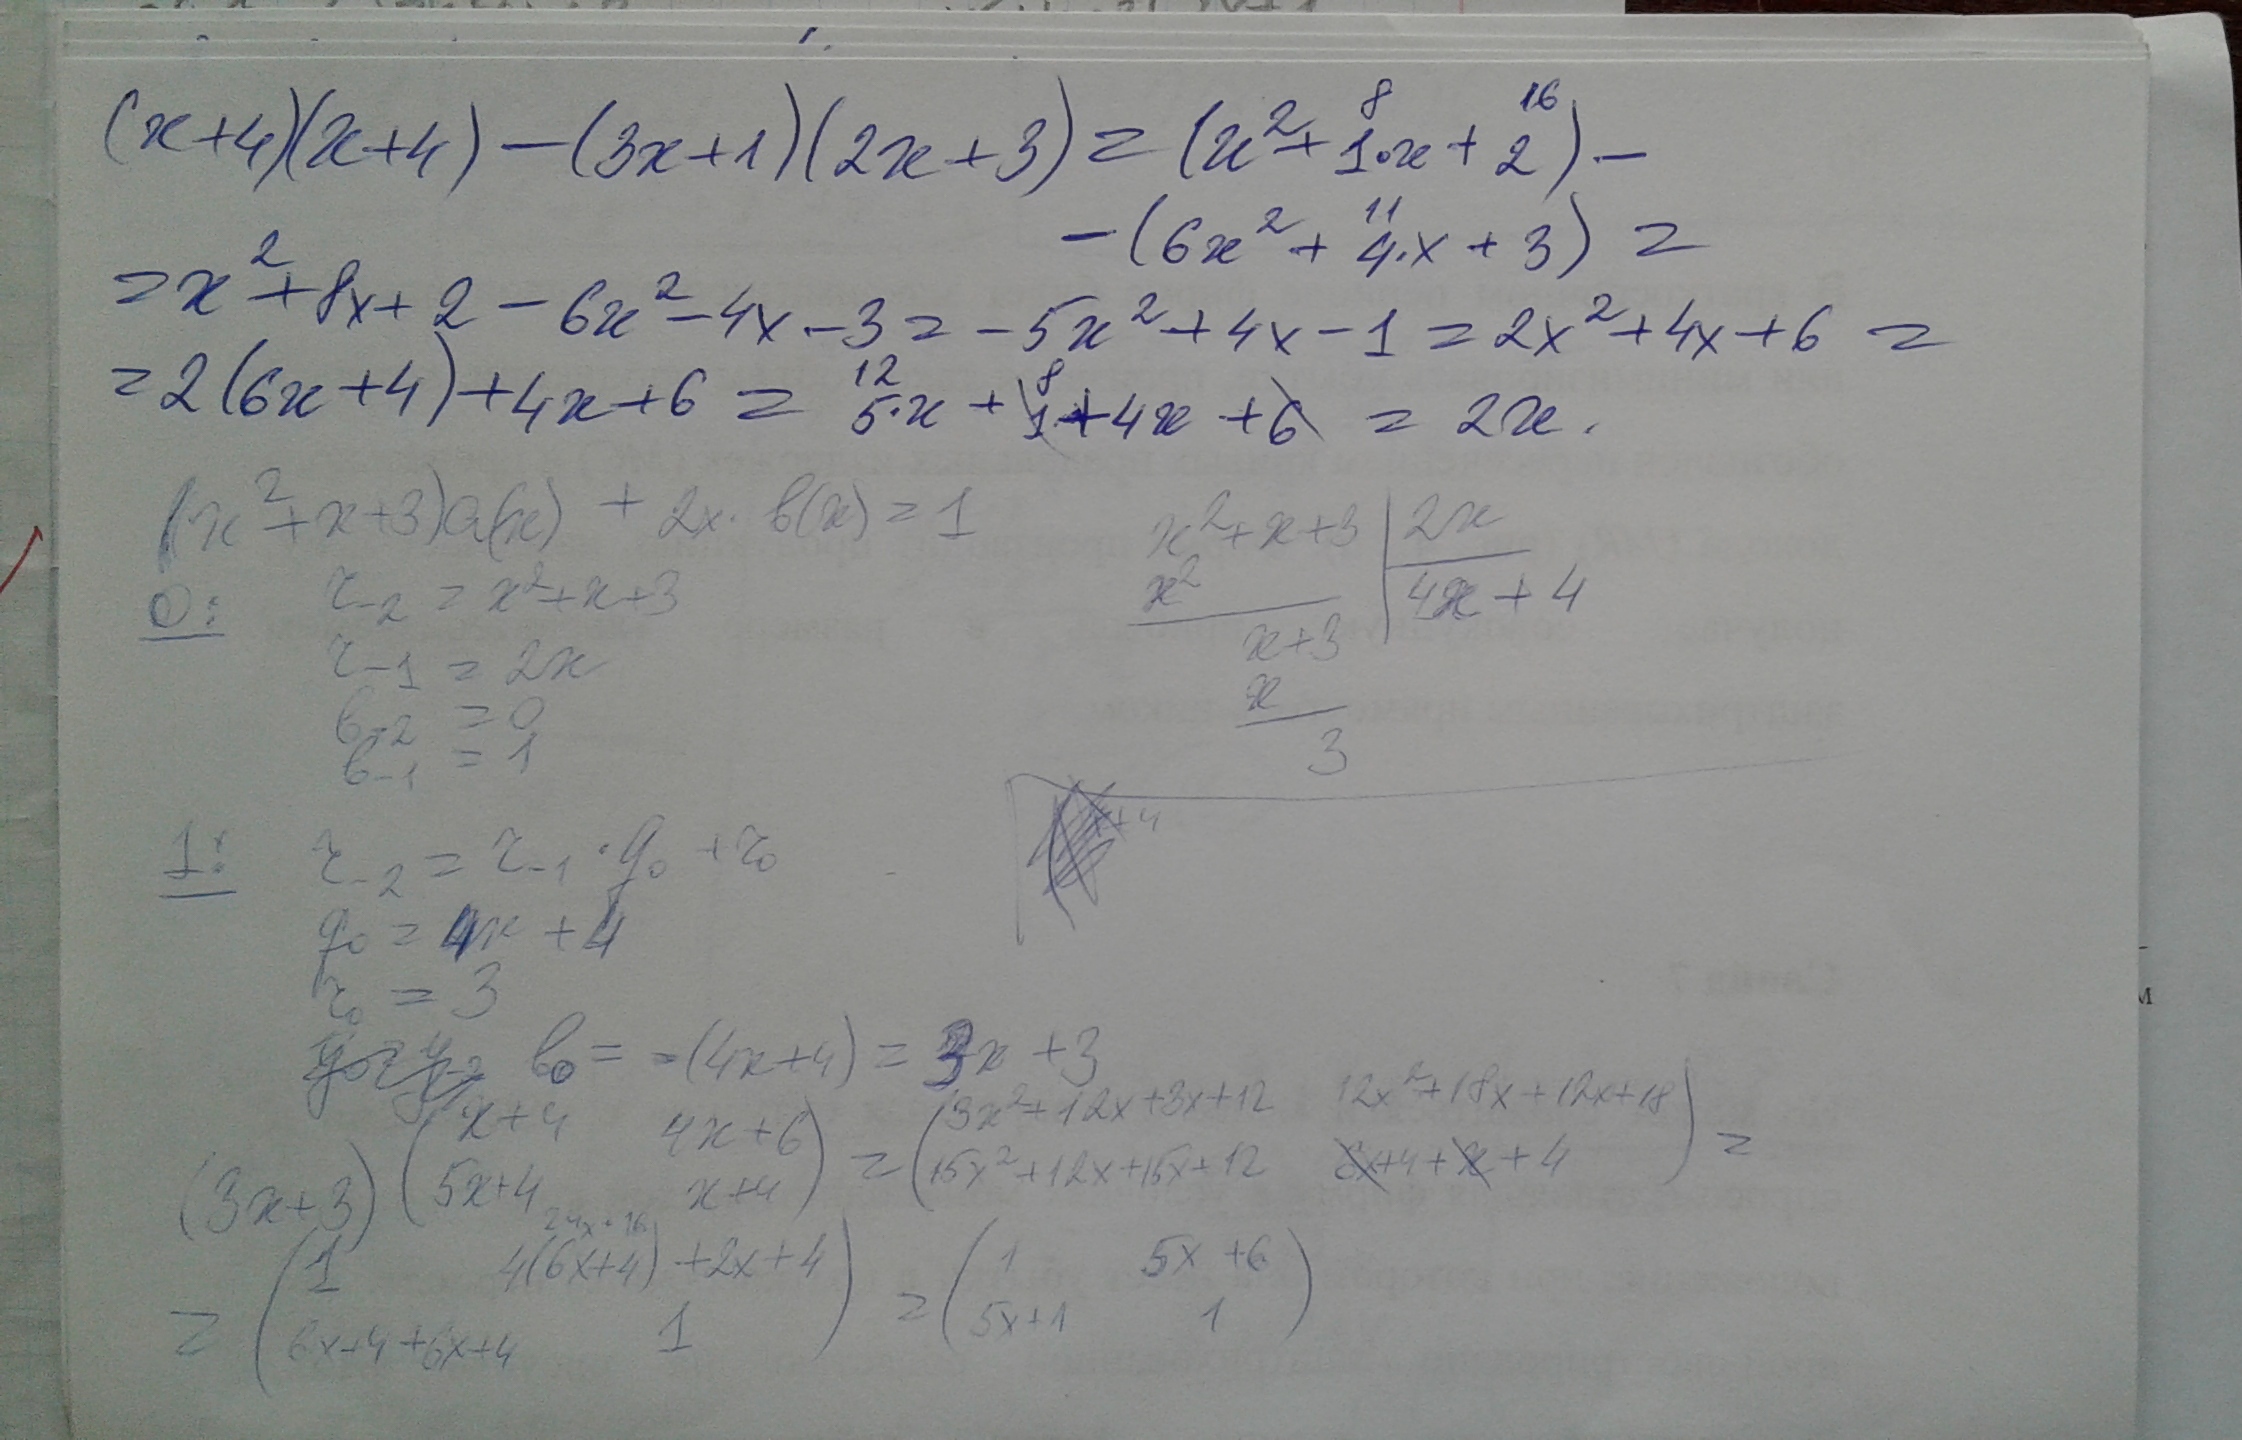 (x+4)(x+4) – (3x+1)(2x+3) = (x² + 1·x + 2) –
8 16
– (6x² + 4·x + 3) =
11
= x² + 8x + 2 – 6x² – 4x – 3 = – 5x² + 4x – 1 = 2x² + 4x + 6 =
= 2(6x+4) + 4x + 6 = 5·x + 1 + 4x + 6 = 2x.
12 8
(x² + x + 3)a(x) + 2x · b(x) = 1
x² + x + 3 | 2x
x² | 4x + 4
x + 3
x
3
0: r₋₂ = x² + x + 3
r₋₁ = 2x
b₋₂ = 0
b₋₁ = 1
x+4
1: r₋₂ = r₋₁ · q₀ + r₀
q₀ = 4x + 4
r₀ = 3
b₀ = –(4x+4) = 3x + 3
(3x+3) ( x+4 4x+6 ) = ( 3x²+12x+3x+12 12x²+18x+12x+18 ) =
( 5x+4 x+4 ) ( 15x²+12x+15x+12 6x+4+x+4 )
24x+16
= ( 1 4(6x+4)+2x+4 ) = ( 1 5x+6 )
( 6x+4+6x+4 1 ) ( 5x+1 1 )